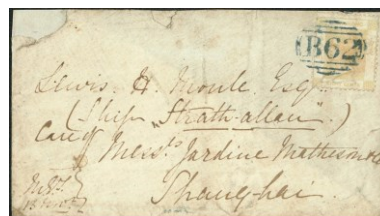 B62
Lewis H. Moule Esqre
(Ship "Strath-allan".)
Care of Messrs Jardine Matheson & Co
Shanghai.